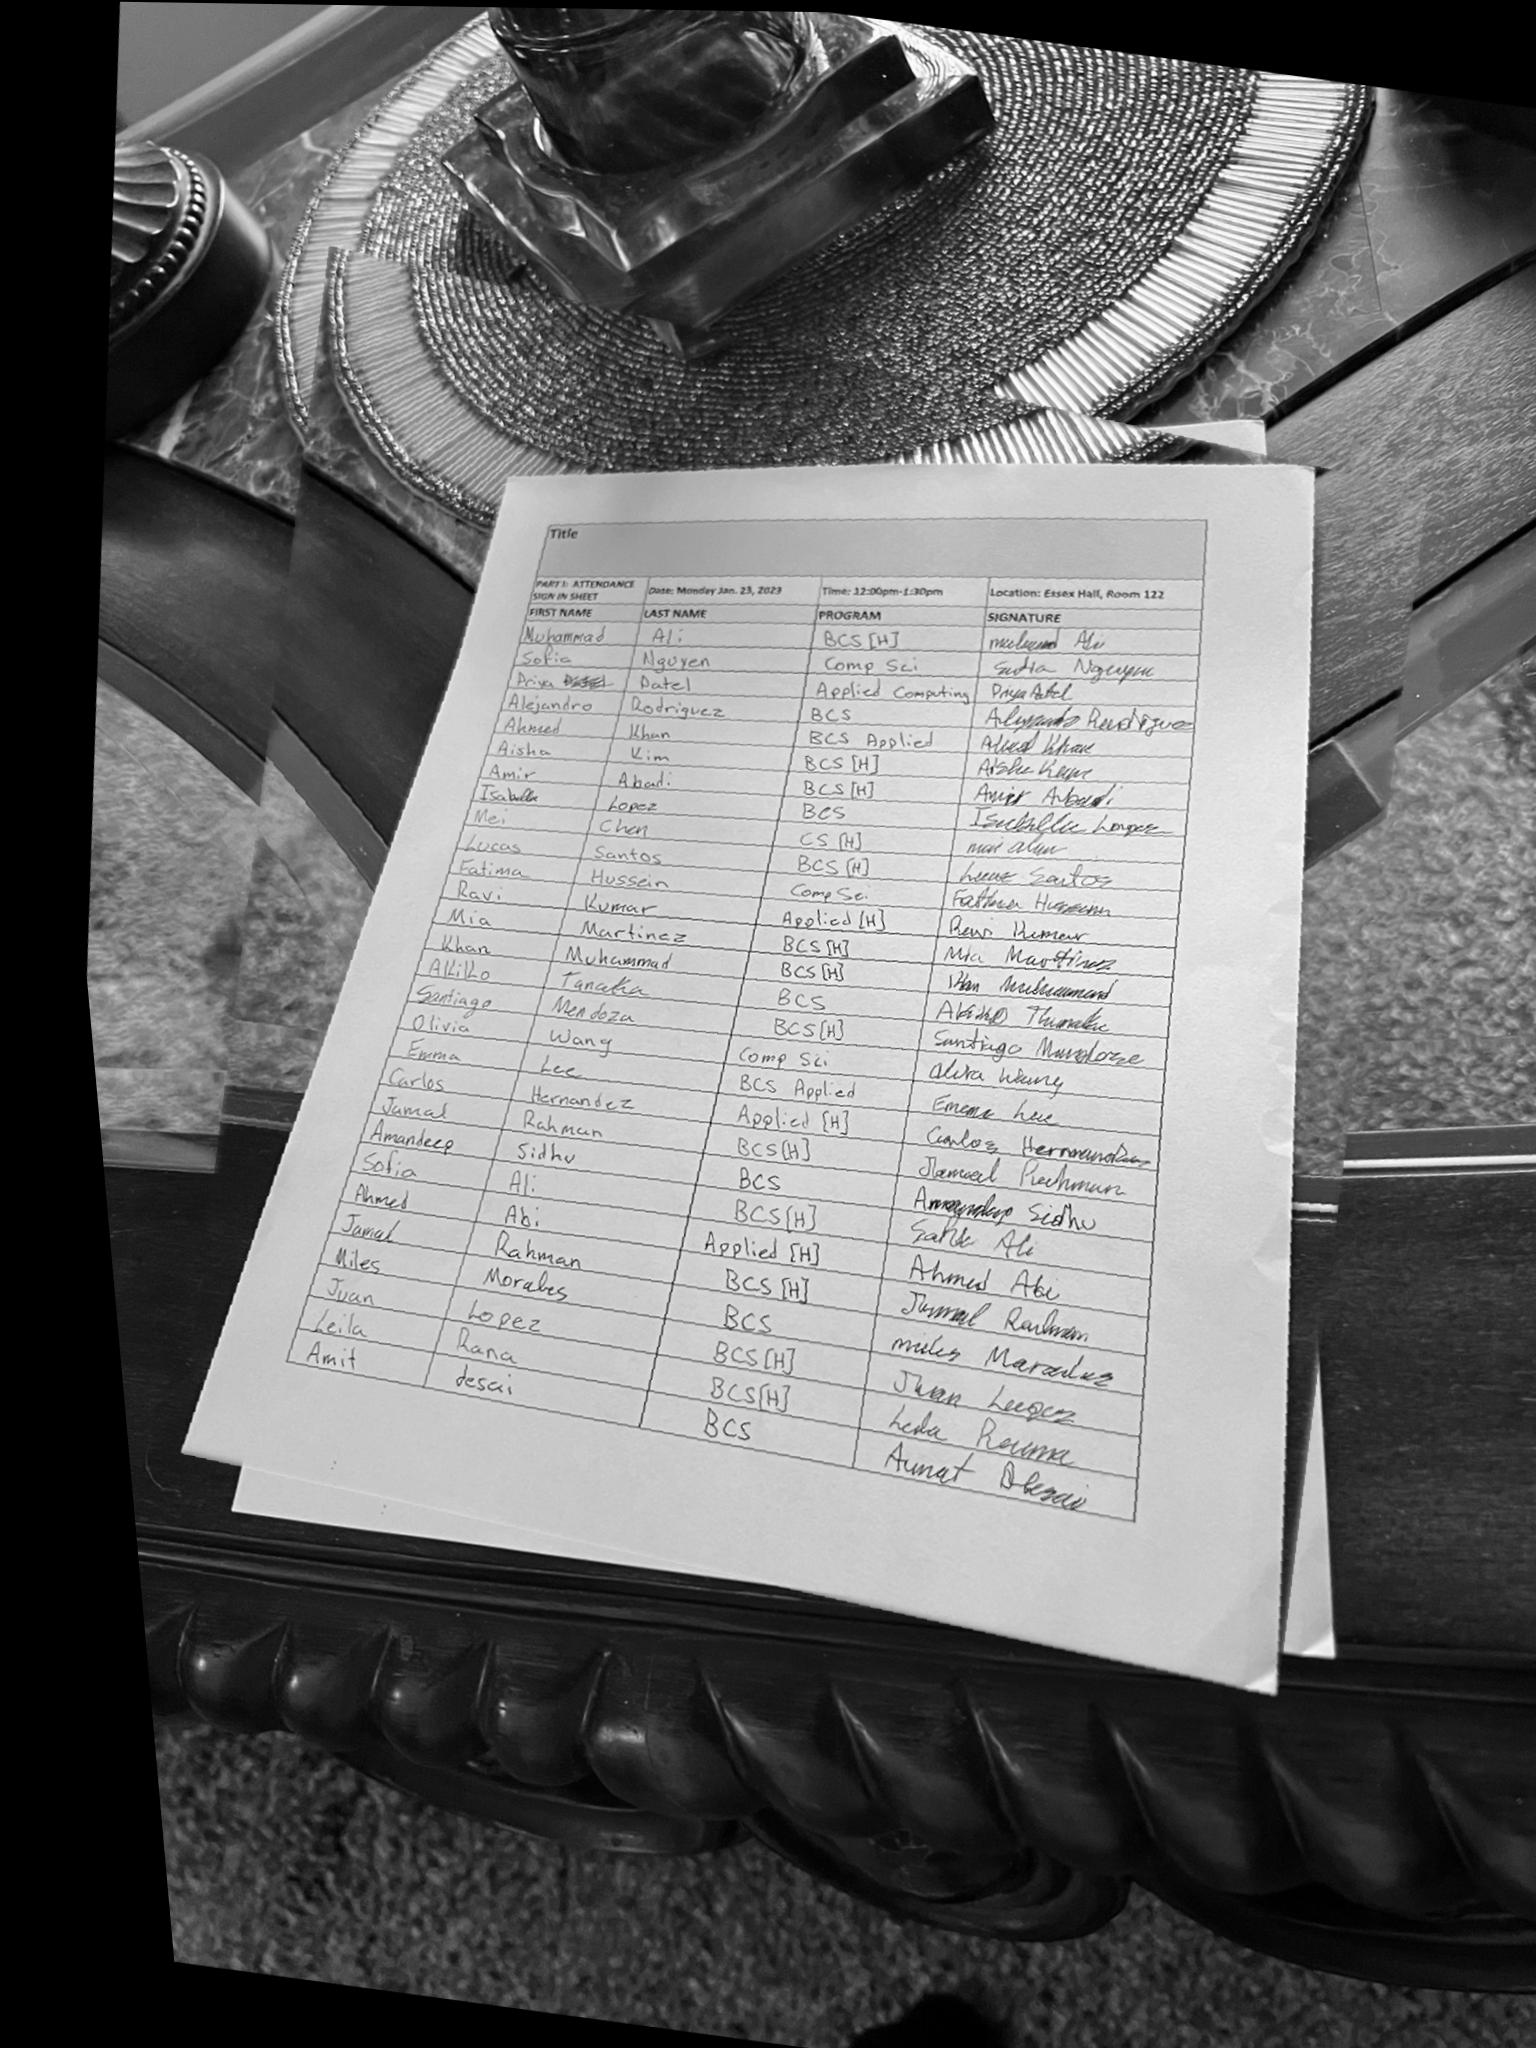 Title
PART I: ATTENDANCE SIGN IN SHEET Date: Monday Jan. 23, 2023 Time: 12:00pm-1:30pm Location: Essex Hall, Room 122
FIRST NAME LAST NAME PROGRAM SIGNATURE
Muhammad Ali BCS [H] Ali
Sofia Nguyen Comp Sci Sofia Nguyen
Priya Patel Applied Computing Priya Patel
Alejandro Rodriguez BCS Alejandro Rodriguez
Ahmed Khan BCS Applied Ahmed Khan
Aisha Kim BCS [H] Aisha Kim
Amir Abadi BCS [H] Amir Abadi
Isabella Lopez BCS Isabella Lopez
Mei Chen CS [H] mei chen
Lucas Santos BCS [H] Lucas Santos
Fatima Hussein Comp Sci. Fatima Hussein
Ravi Kumar Applied [H] Ravi Kumar
Mia Martinez BCS [H] Mia Martinez
Khan Muhammad BCS [H] Khan Muhammad
Akiko Tanaka BCS Akiko Tanaka
Santiago Mendoza BCS [H] Santiago Mendoza
Olivia Wang Comp Sci Olivia Wang
Emma Lee BCS Applied Emma Lee
Carlos Hernandez Applied [H] Carlos Hernandez
Jamal Rahman BCS [H] Jamal Rahman
Amandeep Sidhu BCS Amandeep Sidhu
Sofia Ali BCS [H] Sofia Ali
Ahmed Abi Applied [H] Ahmed Abi
Jamal Rahman BCS [H] Jamal Rahman
Miles Morales BCS miles Morales
Juan Lopez BCS [H] Juan Lopez
Leila Rana BCS [H] Leila Rana
Amit desai BCS Amit Desai